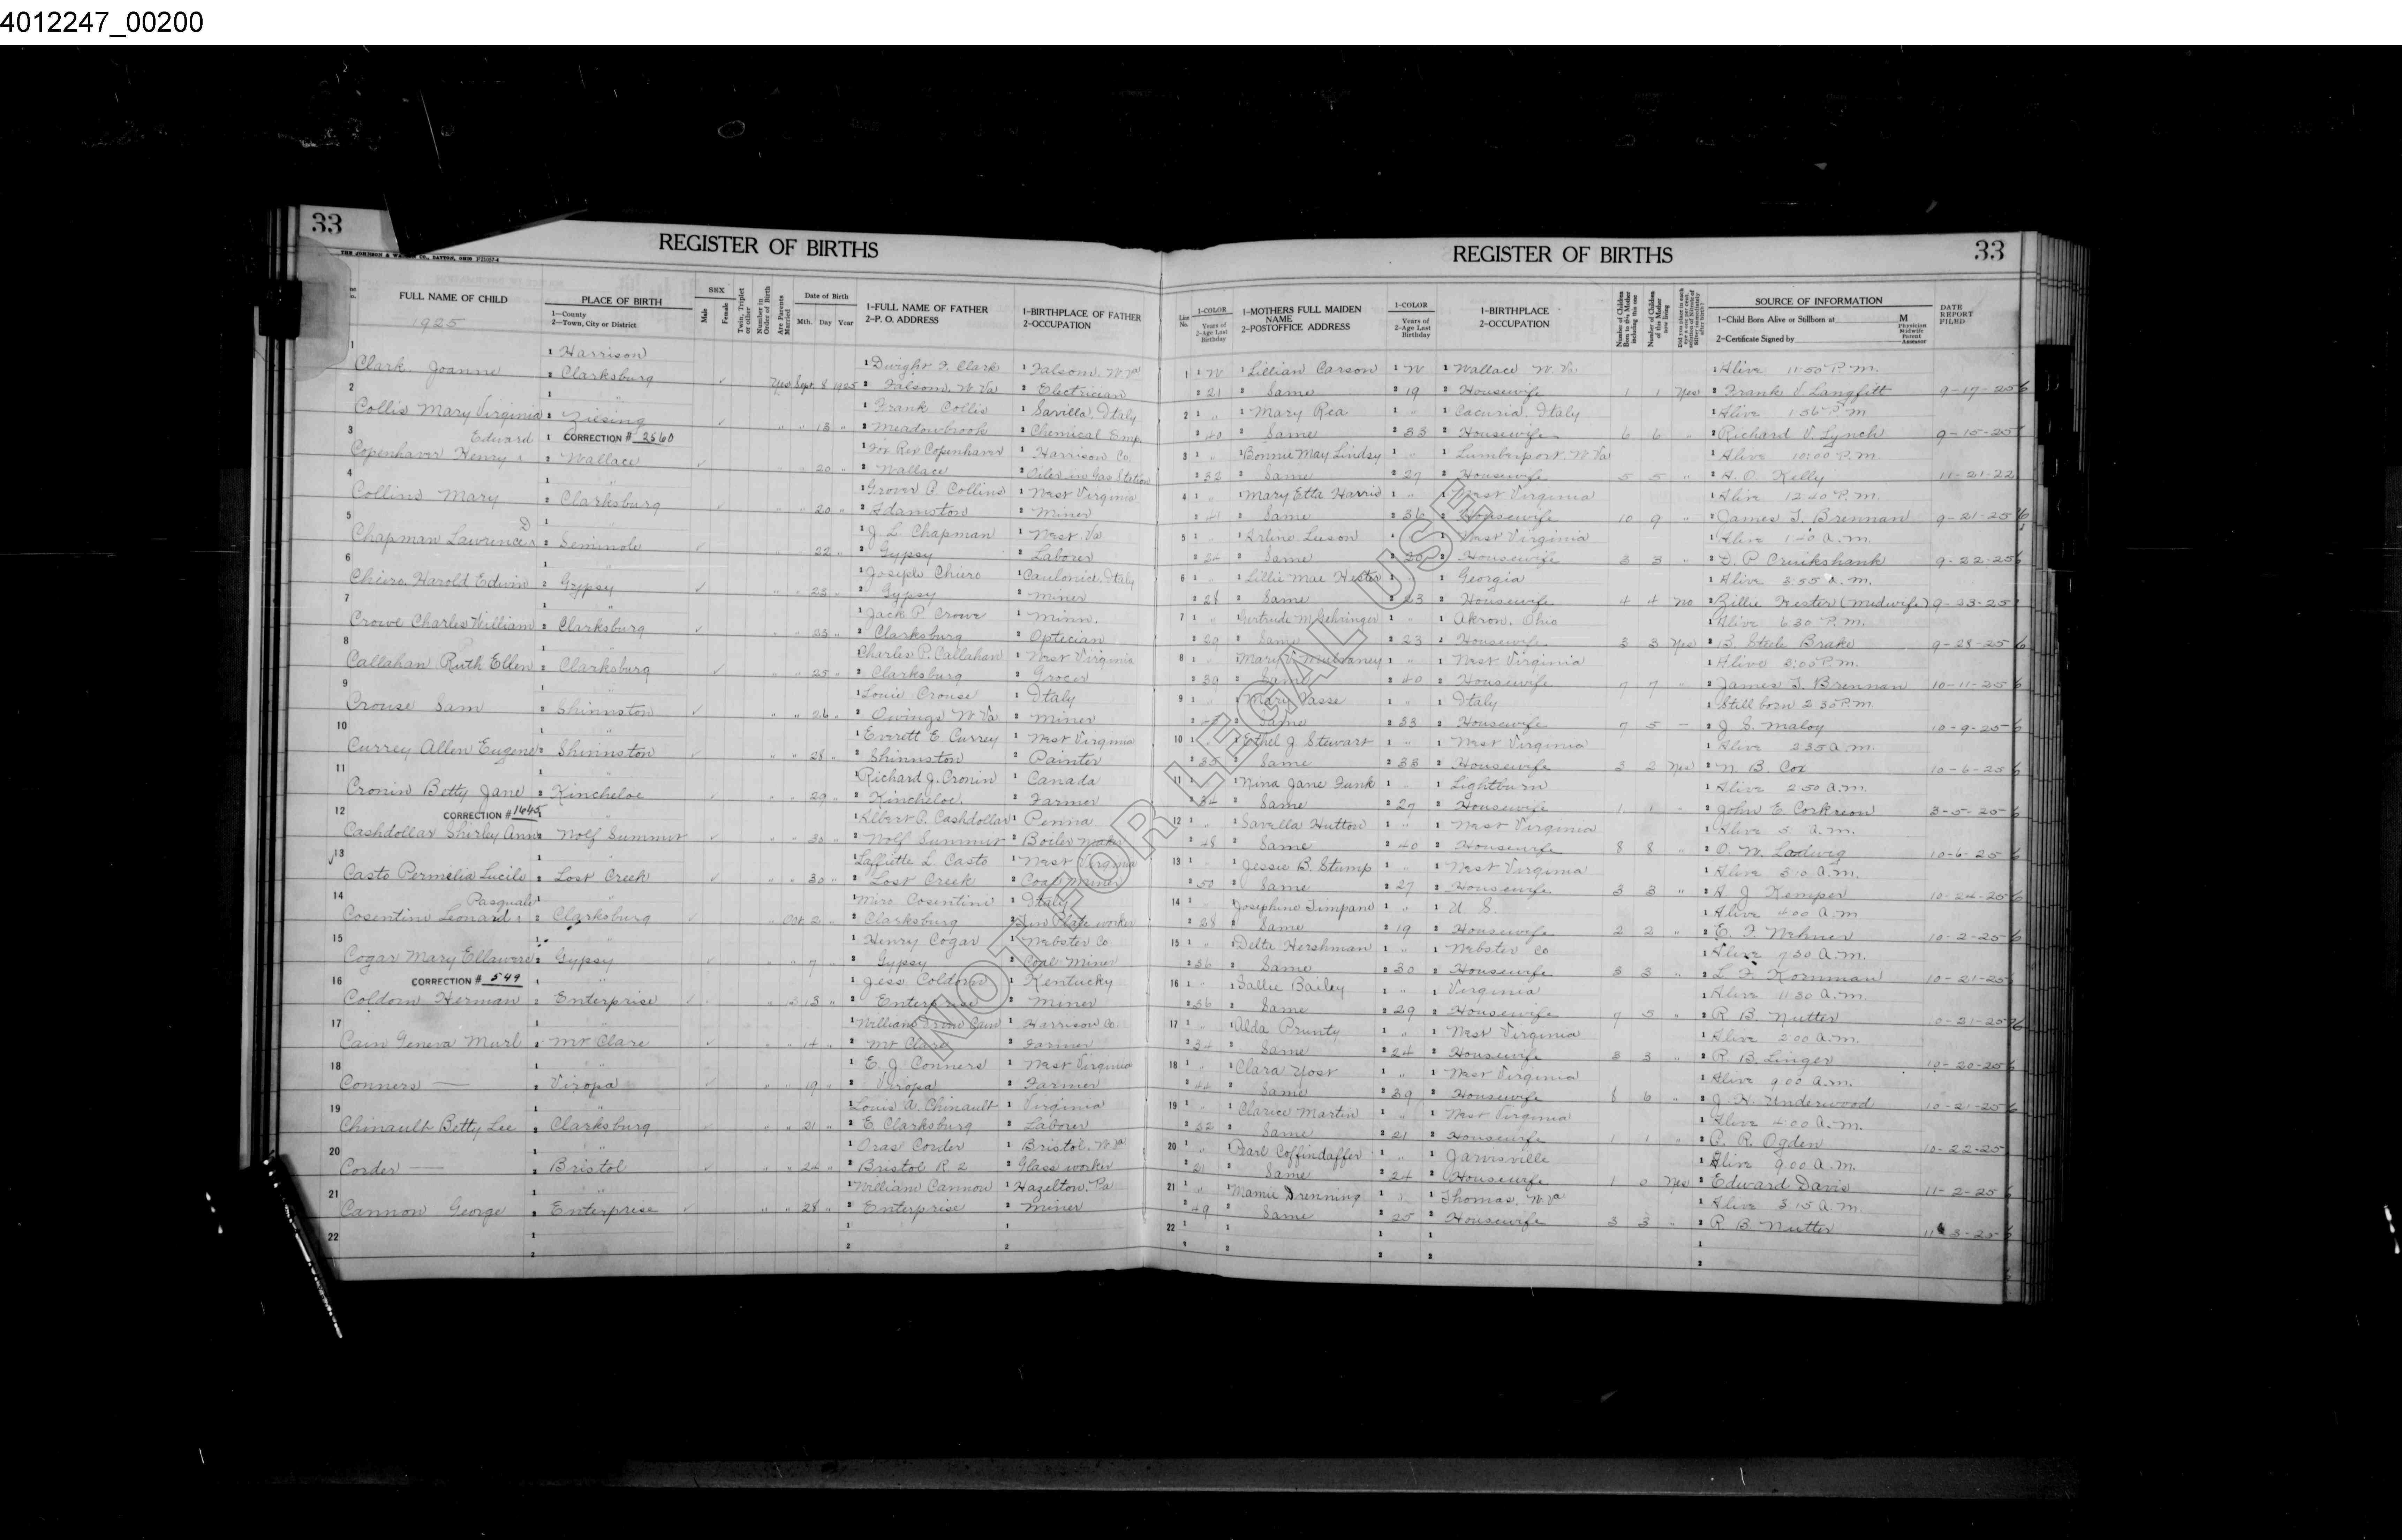 4012247_00200
33
REGISTER OF BIRTHS
REGISTER OF BIRTHS
33
FULL NAME OF CHILD
1925
PLACE OF BIRTH
1—County
2—Town, City or District
SEX
Male
Female
Twin, Triplet or other
Number in Order of Birth
Are Parents Married
Date of Birth
Mth. Day Year
1-FULL NAME OF FATHER
2-P. O. ADDRESS
1-BIRTHPLACE OF FATHER
2-OCCUPATION
Line No.
1-COLOR
Years of
2-Age Last Birthday
1-MOTHERS FULL MAIDEN NAME
2-POSTOFFICE ADDRESS
1-COLOR
Years of
2-Age Last Birthday
1-BIRTHPLACE
2-OCCUPATION
Number of Children Born to this Mother including this one
Number of Children of this Mother now living
SOURCE OF INFORMATION
1-Child Born Alive or Stillborn at M
2-Certificate Signed by
Physician Midwife Parent Assessor
DATE REPORT FILED
1 Clark Joanne 1 Harrison 2 Clarksburg Yes Sept. 8 1925 1 Dwight F. Clark 2 Folsom, W Va 1 Folsom, W Va 2 Electrician
1 1 W 2 21 1 Lillian Carson 2 Same 1 W 2 19 1 Wallace W. Va 2 Housewife 1 1 Yes 1 Alive 11:50 P.M. 2 Frank V Langfitt 9-17-25
2 Collis Mary Virginia 1 " 2 Ziesing " " 13 " 1 Frank Collis 2 Meadowbrook 1 Savilla, Italy 2 Chemical Emp
2 1 " 2 40 1 Mary Rea 2 Same 1 " 2 33 1 Cacuria, Italy 2 Housewife 6 6 " 1 Alive 1:56 P.M 2 Richard V. Lynch 9-15-25
3 Copenhaver Henry Edward 1 CORRECTION # 2560 2 Wallace " " 20 " 1 Fox Rex Copenhaver 2 Wallace 1 Harrison Co. 2 Oiler in Gas Station
3 1 " 2 32 1 Bonnie May Lindsy 2 Same 1 " 2 27 1 Lumberport, W Va 2 Housewife 5 5 " 1 Alive 10:00 P.M. 2 A. O. Kelly 11-21-22
4 Collins Mary 1 " 2 Clarksburg " " 20 " 1 Grover A. Collins 2 Adamston 1 West Virginia 2 Miner
4 1 " 2 41 1 Mary Etta Harris 2 Same 1 " 2 36 1 West Virginia 2 Housewife 10 9 " 1 Alive 12:40 P.M. 2 James T. Brennan 9-21-25
5 Chapman Lawrence D 1 " 2 Seminole " " 22 " 1 J. L. Chapman 2 Gypsy 1 West. Va 2 Laborer
5 1 " 2 24 1 Arline Leeson 2 Same 1 " 2 20 1 West Virginia 2 Housewife 3 3 " 1 Alive 1:40 A.M. 2 D. P. Cruikshank 9-22-25
6 Chiero, Harold Edwin 1 " 2 Gypsy " " 23 " 1 Joseph Chiero 2 Gypsy 1 Caulonia, Italy 2 Miner
6 1 " 2 28 1 Lillie Mae Hester 2 Same 1 " 2 23 1 Georgia 2 Housewife 4 4 No 1 Alive 3:55 A.M. 2 Zillie Hester (Midwife) 9-23-25
7 Crowe Charles William 1 " 2 Clarksburg " " 25 " 1 Jack P. Crowe 2 Clarksburg 1 Minn. 2 Optician
7 1 " 2 29 1 Gertrude M Gehringer 2 Same 1 " 2 23 1 Akron, Ohio 2 Housewife 3 3 Yes 1 Alive 6:30 P.M. 2 B. Steele Brake 9-28-25
8 Callahan Ruth Ellen 1 " 2 Clarksburg " " 25 " 1 Charles P. Callahan 2 Clarksburg 1 West Virginia 2 Grocer
8 1 " 2 39 1 Mary V. Mulvaney 2 Same 1 " 2 40 1 West Virginia 2 Housewife 7 7 " 1 Alive 3:05 P.M. 2 James T. Brennan 10-11-25
9 Crouse Sam 1 " 2 Shinnston " " 26 " 1 Louie Crouse 2 Owings W Va 1 Italy 2 Miner
9 1 " 1 Mary Vasse 2 Same 1 " 2 33 1 Italy 2 Housewife 7 5 — 1 Still born 2 35 P.M. 2 J. S. Maloy 10-9-25
10 Currey Allen Eugene 1 " 2 Shinnston " " 28 " 1 Everett E. Currey 2 Shinnston 1 West Virginia 2 Painter
10 1 " 2 35 1 Ethel J Stewart 2 Same 1 " 2 33 1 West Virginia 2 Housewife 3 2 Yes 1 Alive 2 35 A.M. 2 N. B. Cox 10-6-25
11 Cronin Betty Jane 1 " 2 Kincheloe " " 29 " 1 Richard J. Cronin 2 Kincheloe. 1 Canada 2 Farmer
11 1 " 2 34 1 Nina Jane Funk 2 Same 1 " 2 27 1 Lightburn 2 Housewife 1 1 " 1 Alive 2 50 A.M. 2 John E. Corkrean 3-5-25
12 CORRECTION # 1645 Cashdollar Shirley Ann 1 " 2 Wolf Summit " " 30 " 1 Albert C. Cashdollar 2 Wolf Summit 1 Penna 2 Boiler Maker
12 1 " 2 48 1 Savella Hutton 2 Same 1 " 2 40 1 West Virginia 2 Housewife 8 8 " 1 Alive 5 A.M. 2 O. W. Ladwig 10-6-25
13 Casto Permelia Lucile 1 " 2 Lost Creek " " 30 " 1 Laffiette L. Casto 2 Lost Creek 1 West Virginia 2 Coal Miner
13 1 " 2 50 1 Jessie B. Stump 2 Same 1 " 2 27 1 West Virginia 2 Housewife 3 3 " 1 Alive 3:10 A.M. 2 A J Kemper 10-24-25
14 Cosentini Leonard Pasquale 1 " 2 Clarksburg " Oct. 2 " 1 Miro Cosentini 2 Clarksburg 1 Italy 2 Tin Plate worker
14 1 " 2 28 1 Josephine Timpano 2 Same 1 " 2 19 1 U. S. 2 Housewife 2 2 " 1 Alive 4 00 A.M 2 E. F. Wehner 10-2-25
15 Cogar Mary Ellawere 1 " 2 Gypsy " " 7 " 1 Henry Cogar 2 Gypsy 1 Webster Co 2 Coal Miner
15 1 " 2 36 1 Delta Hershman 2 Same 1 " 2 30 1 Webster Co 2 Housewife 3 3 " 1 Alive 7 30 A.M. 2 L. F. Kornman 10-21-25
16 CORRECTION # 549 Coldorn Herman 1 " 2 Enterprise " " 13 " 1 Jess Coldorn 2 Enterprise 1 Kentucky 2 Miner
16 1 " 2 36 1 Sallie Bailey 2 Same 1 " 2 29 1 Virginia 2 Housewife 7 5 " 1 Alive 11:30 A.M. 2 R. B. Nutter 10-21-25
17 Cain Geneva Murl 1 " 2 Mt Clare " " 14 " 1 William Cain 2 Mt Clare 1 Harrison Co 2 Farmer
17 1 " 2 34 1 Alda Prunty 2 Same 1 " 2 24 1 West Virginia 2 Housewife 3 3 " 1 Alive 2 00 A.M. 2 R. B. Linger 10-20-25
18 Conners — 1 " 2 Viropa " " 19 " 1 E. J Conners 2 Viropa 1 West Virginia 2 Farmer
18 1 " 2 44 1 Clara Yost 2 Same 1 " 2 39 1 West Virginia 2 Housewife 8 6 " 1 Alive 9 00 A.M. 2 J. H. Underwood 10-21-25
19 Chinault Betty Lee 1 " 2 Clarksburg " " 21 " 1 Louis A. Chinault 2 E. Clarksburg 1 Virginia 2 Laborer
19 1 " 2 22 1 Clarice Martin 2 Same 1 " 2 21 1 West Virginia 2 Housewife 1 1 " 1 Alive 4:00 A.M. 2 C. R. Ogden 10-22-25
20 Corder — 1 " 2 Bristol " " 24 " 1 Oras Corder 2 Bristol R 2 1 Bristol, W Va 2 Glass worker
20 1 " 2 21 1 Pearl Coffindaffer 2 Same 1 " 2 24 1 Jarvisville 2 Housewife 1 0 Yes 1 Alive 9 00 A.M. 2 Edward Davis 11-2-25
21 Cannon George 1 " 2 Enterprise " " 28 " 1 William Cannon 2 Enterprise 1 Hazelton, Pa 2 Miner
21 1 " 2 49 1 Mamie Drenning 2 Same 1 " 2 25 1 Thomas, W Va 2 Housewife 3 3 " 1 Alive 3 15 A.M. 2 R. B. Nutter 11-3-25
22
22
NOT FOR LEGAL USE